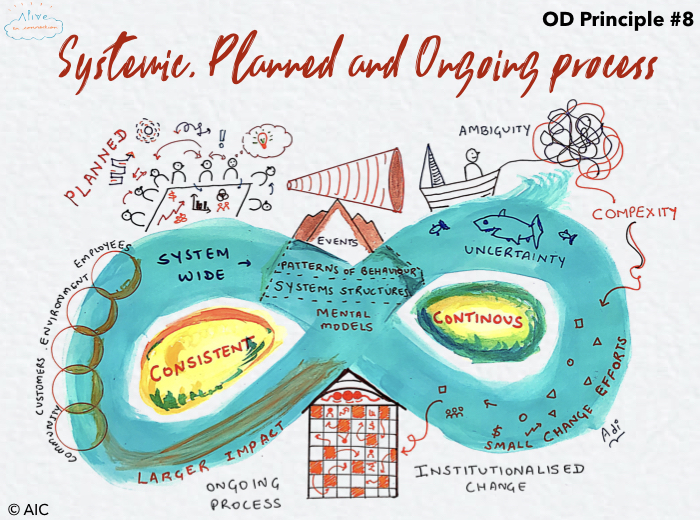 Alive
in connection
OD Principle #8
Systemic, Planned and Ongoing process
PLANNED
AMBIGUITY
COMPEXITY
EVENTS
PATTERNS OF BEHAVIOUR
SYSTEMS STRUCTURES
MENTAL
MODELS
SYSTEM
WIDE
UNCERTAINTY
EMPLOYEES
ENVIRONMENT
CUSTOMERS
COMMUNITY
CONSISTENT
CONTINOUS
LARGER IMPACT
SMALL CHANGE EFFORTS
Adi
ONGOING
PROCESS
INSTITUTIONALISED
CHANGE
© AIC